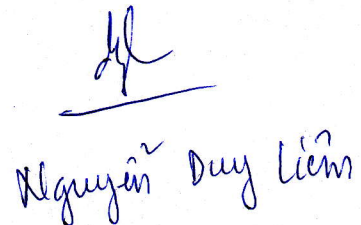 Nguyễn Duy Liêm